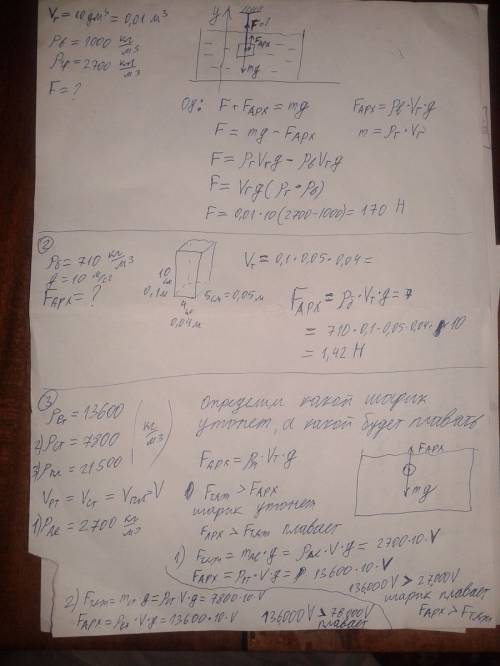 Vт = 10 дм³ = 0,01 м³
ρв = 1000 кг/м³
ρг = 2700 кг/м³
F = ?
y
F = ?
FАРХ
mg
Oy: F + FАРХ = mg
FАРХ = ρв · Vт · g
F = mg - FАРХ
m = ρт · Vт
F = ρтVтg - ρвVтg
F = Vтg(ρт - ρв)
F = 0,01 · 10(2700-1000) = 170 Н
②
ρб = 710 кг/м³
g = 10 м/с²
FАРХ = ?
10 см
0,1 м
5 см = 0,05 м
4 см
0,04 м
Vт = 0,1 · 0,05 · 0,04 =
FАРХ = ρб · Vт · g =
= 710 · 0,1 · 0,05 · 0,04 · 10
= 1,42 Н
③
ρрт = 13600
2) ρст = 7800
3) ρпл = 21500
кг/м³
Vрт = Vст = Vпл = V
1) ρАл = 2700 кг/м³
Определим какой шарик
утонет, а какой будет плавать
FАРХ = ρп · Vт · g
Fтяж > FАРХ
шарик утонет
FАРХ > Fтяж плавает
FАРХ
mg
1) Fтяж = mАл · g = ρАл · V · g = 2700 · 10 · V
FАРХ = ρрт · V · g = 13600 · 10 · V
136000V > 27000V
шарик плавает
FАРХ > Fтяж
2) Fтяж = mст · g = ρст · V · g = 7800 · 10 · V
FАРХ = ρрт · V · g = 13600 · 10 · V
136000V > 78000V
плавает